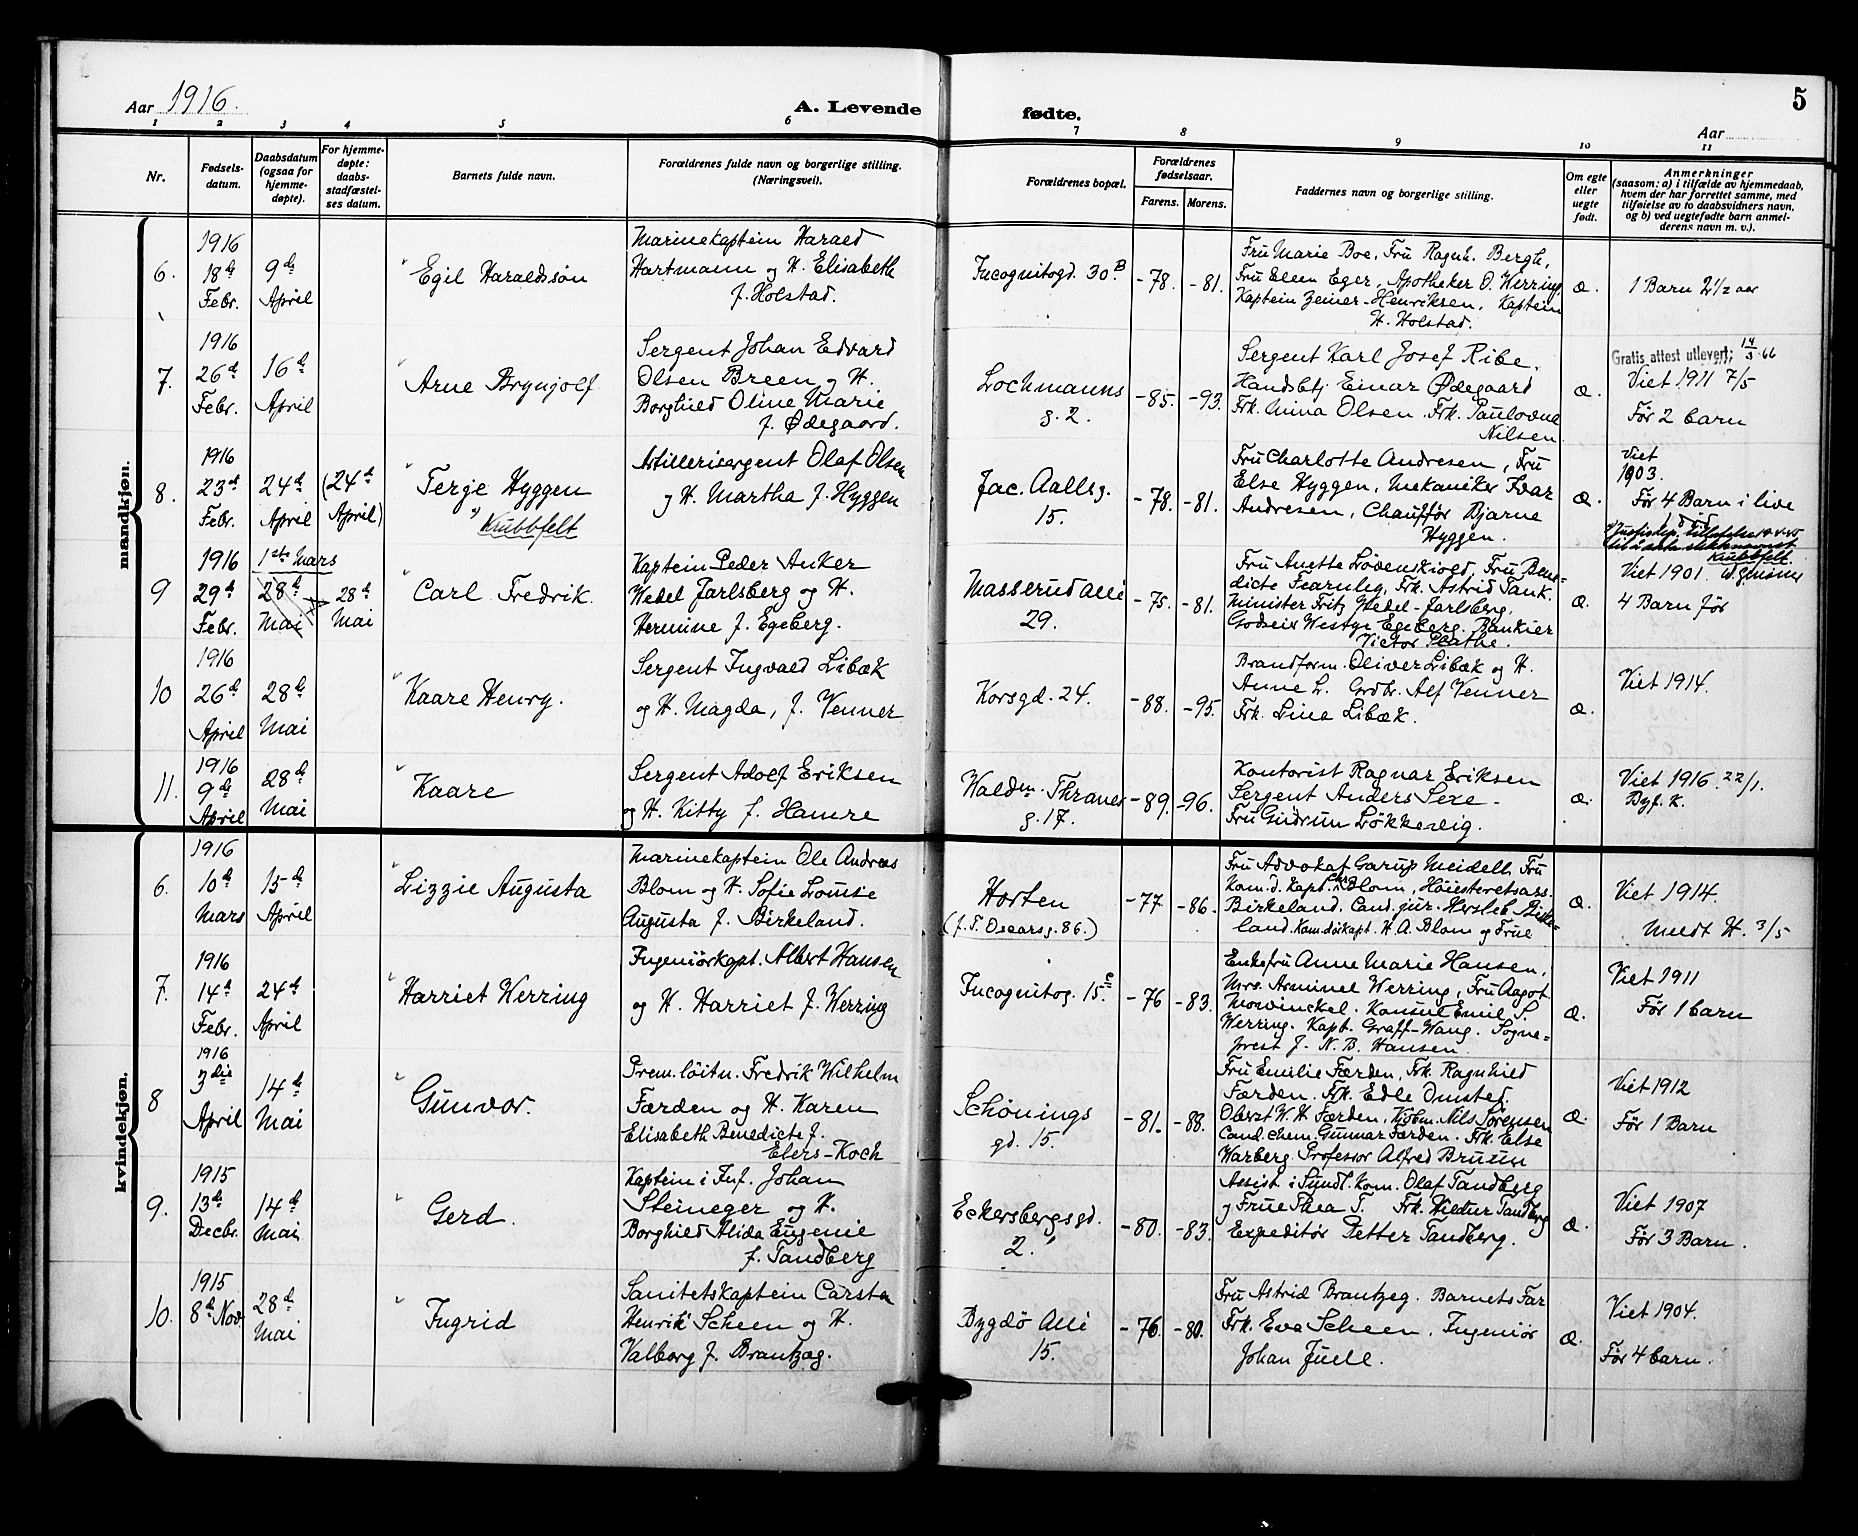 Aar 1916.
A. Levende fødte.
5
Aar
1 2 3 4 5 6 7 8 9 10 11
Nr.
Fødsels-
datum.
Daabsdatum
(ogsaa for
hjemme-
døpte).
For hjemme-
døpte:
daabs-
stadfæstel-
ses datum.
Barnets fulde navn.
Forældrenes fulde navn og borgerlige stilling.
(Næringsvei).
Forældrenes bopæl.
Forældrenes
fødselsaar.
Farens. Morens.
Faddernes navn og borgerlige stilling.
Om egte
eller
uegte
født.
Anmerkninger
(saasom: a) i tilfælde av hjemmedaab,
hvem der har forrettet samme, med
tilføielse av to daabsvidners navn,
og b) ved uegtefødte barn anmel-
derens navn m. v.).
mandkjøn.
6.
1916
18de
Febr.
9de
April
Egil Haraldssøn
Marinekaptein Harald
Hartmann og H. Elisabeth
f. Holstad.
Incognitogd. 30.B
-78. -81.
Fru Marie Boe, Fru Ragnh. Bergh,
Fru Ellen Eger, Apotheker O. Werring
Kaptein Zeiner-Henriksen, Kaptein
H. Holstad.
Æ.
1 Barn 2 1/2 aar
7.
1916
26de
Febr.
16de
April
Arne Brynjolf
Sergent Johan Edvard
Olsen Breen og H.
Borghild Oline Marie
f. Ødegaard.
Lochmanns
g. 2.
-85. -93.
Sergent Karl Josef Ribe.
Handsbtj Einar Ødegaard
Frk. Mina Olsen. Frk. Paulovne
Nilsen.
Æ.
Gratis attest utlevert; 14/3 66
Viet 1911 7/5
Før 2 barn
8.
1916
23de
Febr.
24de
April
(24de
April)
Terje Hyggen
" Krubbfelt
Artillerisergent Olaf Olsen
og H. Martha f. Hyggen
Jac. Aallsg.
15.
-78. -81.
Fru Charlotte Andresen, Fru
Else Hyggen, Mekaniker Ivar
Andresen, Chauffør Bjarne
Hyggen.
Æ.
Viet
1903.
Før 4 Barn i live
Krubbfelt.
9
1916
29de
Febr.
1ste Mars
28de
Mai
28de
Mai
Carl Fredrik.
Kaptein Peder Anker
Wedel Jarlsberg og H.
Hermine f. Egeberg.
Masserud alle
29.
-75. -81.
Fru Anette Løvenskiold, Fru Bene-
dicte Fearnley, Frk. Astrid Tank.
Minister Fritz Wedel-Jarlsberg.
Godseier Westye Egeberg. Bankier
Victor Plathe.
Æ.
Viet 1901.
4 Barn før
10
1916
26de
April
28de
Mai
Kaare Henry.
Sergent Ingvald Libæk
og H. Magda, f. Venner
Korsgd. 24.
-88. -95.
Brandform. Oliver Libæk og H.
Anne L. Grdbr. Alf Venner
Frk. Lina Libæk.
Æ.
Viet 1914.
11.
1916
9de
April
28de
Mai
Kaare
Sergent Adolf Eriksen
og H. Kitty f. Hamre
Waldm. Thranes
g. 17.
-89. -96.
Kontorist Ragnar Eriksen
Sergent Anders Sexe -
Fru Gudrun Løkkevig.
Æ.
Viet 1916. 22/1.
Byf. K.
kvindekjøn.
6.
1916
10de
Mars
15de
April
Lizzie Augusta
Marinekaptein Ole Andreas
Blom og H. Sofie Louise
Augusta f. Birkeland.
Horten
(f. T. Oscarsg. 86.)
-77 -86.
Fru Advokat Garup Meidell, Fru
Kom.d. Kapt. Blom, Høiesteretsass.
Birkeland. Cand. jur. Hersleb Birke-
land. Komdørkapt. H. A. Blom og Frue
Æ.
Viet 1914.
Meldt H. 3/5
7.
1916
14de
Febr.
24de
April
Harriet Werring
Ingeniørkapt. Albert Hansen
og H. Harriet f. Werring
Incognitog. 15.c
-76 -83.
Enkefru Anne Marie Hansen,
Mrs. Arminel Werring, Fru Aagot
Mowinckel. Konsul Emil S.
Werring. Kapt. Graff-Wang. Sogne-
prest J. N. B. Hansen
Æ.
Viet 1911
Før 1 barn
8
1916
3die
April
14de
Mai
Gunvor.
Prem. løitn. Fredrik Wilhelm
Færden og H. Karen
Elisabeth Benedicte f.
Elers-Koch
Schönings
gd. 15.
-81. -88.
Fru Emilie Færden, Frk. Ragnhild
Færden. Frk. Edle Omsted.
Oberst W. H. Færden, Kjøbm. Nils Sørensen
Cand. chem. Gunnar Færden. Frk. Else
Warberg. Professor Alfred Bruun
Æ.
Viet 1912
Før 1 Barn
9.
1915
13de
Decbr.
14de
Mai
Gerd.
Kaptein i Inf. Johan
Steineger og H.
Borghild Alida Eugenie
f. Tandberg
Eckersbergsgd.
2."
-80. -83.
Assist. i Sundh. Kom. Olaf Tandberg
og Frue Thea T. Frk. Hildur Tandberg
Expeditør Petter Tandberg.
Æ
Viet 1907
Før 3 Barn.
10.
1915
8de Nov
28de
Mai
Ingrid
Sanitetskaptein Carsten
Henrik Scheen og H.
Valborg f. Brantzæg.
Bygdö Alle
15.
-76. -80.
Fru Astrid Brantzeg. Barnets Far
Frk. Eva Scheen. Ingeniør
Johan Juell.
Æ.
Viet 1904.
Før 4 barn.